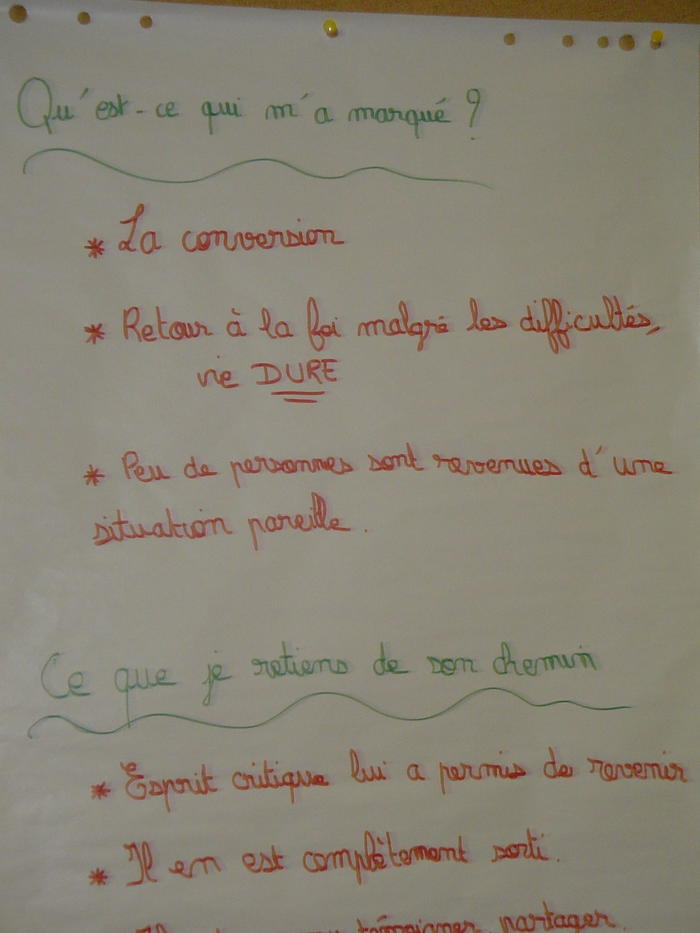 Qu'est-ce qui m'a marqué ?
* La conversion
* Retour à la foi malgré les difficultés,
vie DURE
* Peu de personnes sont revenues d'une
situation pareille.
Ce que je retiens de son chemin
* Esprit critique lui a permis de revenir
* Il en est complètement sorti.
témoigner partager.